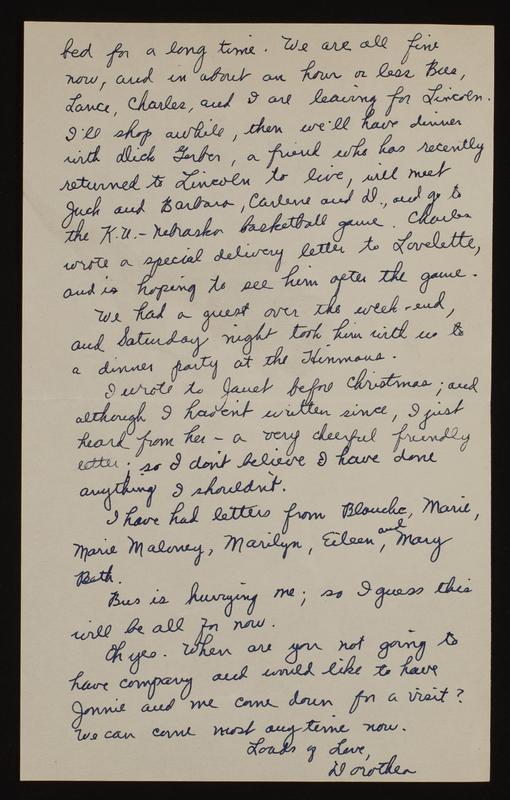 bed for a long time. We are all fine
now, and in about an hour or less Bus,
Lance, Charles, and I are leaving for Lincoln.
I'll shop awhile, then we'll have dinner
with Dick Gerber, a friend who has recently
returned to Lincoln to live, will meet
Jack and Barbara, Carlene and D., and go to
the K.U. - Nebraska basketball game. Charles
wrote a special delivery letter to Lovelette,
and is hoping to see him after the game.
We had a guest over the week-end,
and Saturday night took him with us to
a dinner party at the Hinmans.
I wrote to Janet before Christmas; and
although I haven't written since, I just
heard from her - a very cheerful friendly
letter; so I don't believe I have done
anything I shouldn't.
I have had letters from Blanche, Marie,
Marie Maloney, Marilyn, Eileen, and Mary
Beth.
Bus is hurrying me; so I guess this
will be all for now.
Oh yes. When are you not going to
have company and would like to have
Jonnie and me come down for a visit?
We can come most any time now.
Loads of Love,
Dorothea